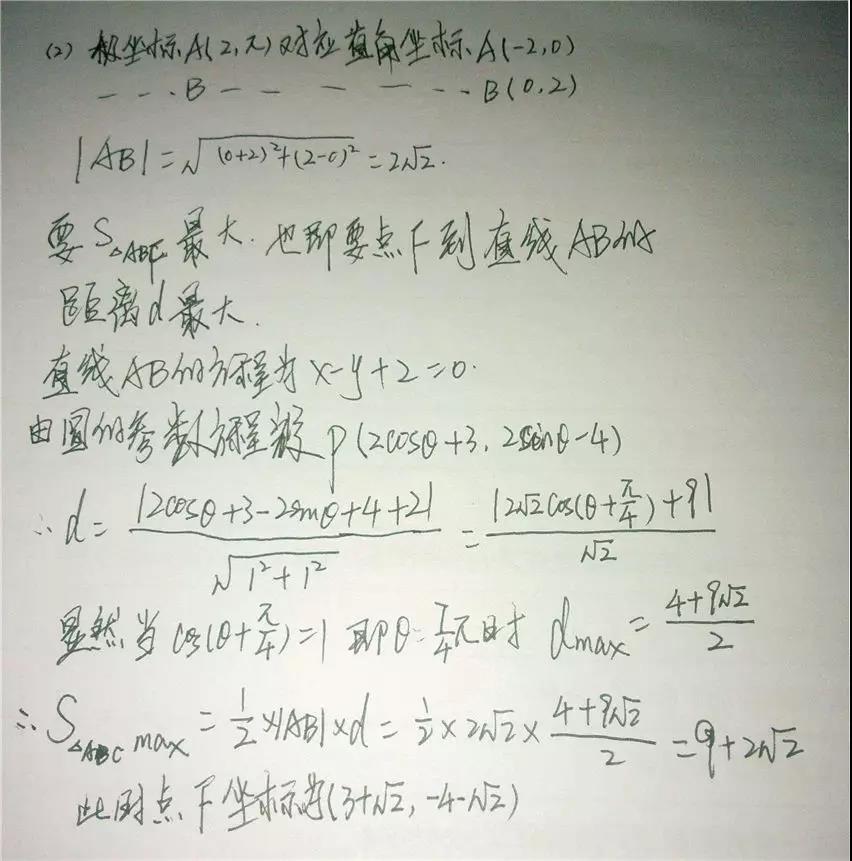 (2) 极坐标A(2,π)对应直角坐标A(-2,0)
- - - B - - - - - - - B(0,2)
|AB|=√((0+2)²+(2-0)²)=2√2.
要S△ABF最大.也即要点F到直线AB的
距离d最大.
直线AB的方程为x-y+2=0.
由圆的参数方程设P(2cosθ+3,2sinθ-4)
∴d=|2cosθ+3-2sinθ+4+2|/√(1²+1²)=|2√2cos(θ+π/4)+9|/√2
显然当cos(θ+π/4)=1即θ=7/4π时 dmax=(4+9√2)/2
∴S△ABC max=1/2×|AB|×d=1/2×2√2×(4+9√2)/2=9+2√2
此时点F坐标为(3+√2,-4-√2)